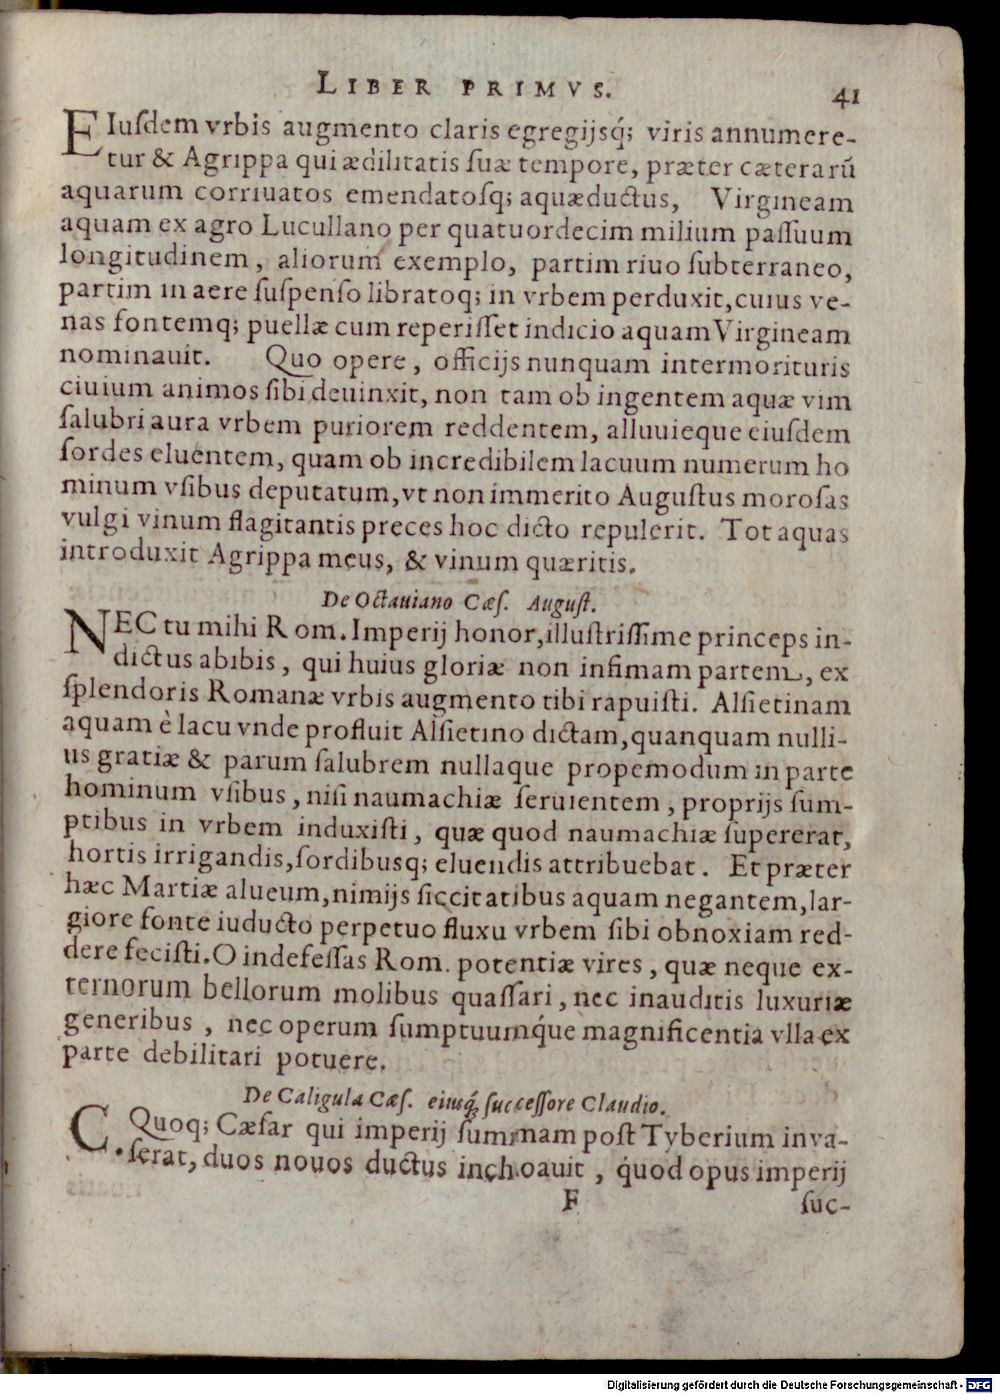 LIBER PRIMVS. 41
EIuſdem vrbis augmento claris egregijsq́; viris annumere-
tur & Agrippa qui ædilitatis ſuæ tempore, præter cæterarū
aquarum corriuatos emendatoſq; aquæductus, Virgineam
aquam ex agro Lucullano per quatuordecim milium paſſuum
longitudinem, aliorum exemplo, partim riuo ſubterraneo,
partim in aere ſuſpenſo libratoq; in vrbem perduxit, cuius ve-
nas fontemq; puellæ cum reperiſſet indicio aquam Virgineam
nominauit. Quo opere, officijs nunquam intermorituris
ciuium animos ſibi deuinxit, non tam ob ingentem aquæ vim
ſalubri aura vrbem puriorem reddentem, alluuieque eiuſdem
ſordes eluentem, quam ob incredibilem lacuum numerum ho
minum vſibus deputatum, vt non immerito Auguſtus moroſas
vulgi vinum flagitantis preces hoc dicto repulerit. Tot aquas
introduxit Agrippa meus, & vinum quæritis.
De Octauiano Cæſ. Auguſt.
NEC tu mihi Rom. Imperij honor, illuſtriſſime princeps in-
dictus abibis, qui huius gloriæ non infimam partem, ex
ſplendoris Romanæ vrbis augmento tibi rapuiſti. Alſietinam
aquam è lacu vnde profluit Alſietino dictam, quanquam nulli-
us gratiæ & parum ſalubrem nullaque propemodum in parte
hominum vſibus, niſi naumachiæ ſeruientem, proprijs ſum-
ptibus in vrbem induxiſti, quæ quod naumachiæ ſupererat,
hortis irrigandis, ſordibusq; eluendis attribuebat. Et præter
hæc Martiæ alueum, nimijs ſiccitatibus aquam negantem, lar-
giore fonte iuducto perpetuo fluxu vrbem ſibi obnoxiam red-
dere feciſti. O indefeſſas Rom. potentiæ vires, quæ neque ex-
ternorum bellorum molibus quaſſari, nec inauditis luxuriæ
generibus, nec operum ſumptuumq́ue magnificentia vlla ex
parte debilitari potuere.
De Caligula Cæſ. eiuſq́; ſucceſſore Claudio.
C. Quoq; Cæſar qui imperij ſummam poſt Tyberium inva-
ſerat, duos nouos ductus inchoauit, quod opus imperij
F ſuc-
Digitalisierung gefördert durch die Deutsche Forschungsgemeinschaft - DFG